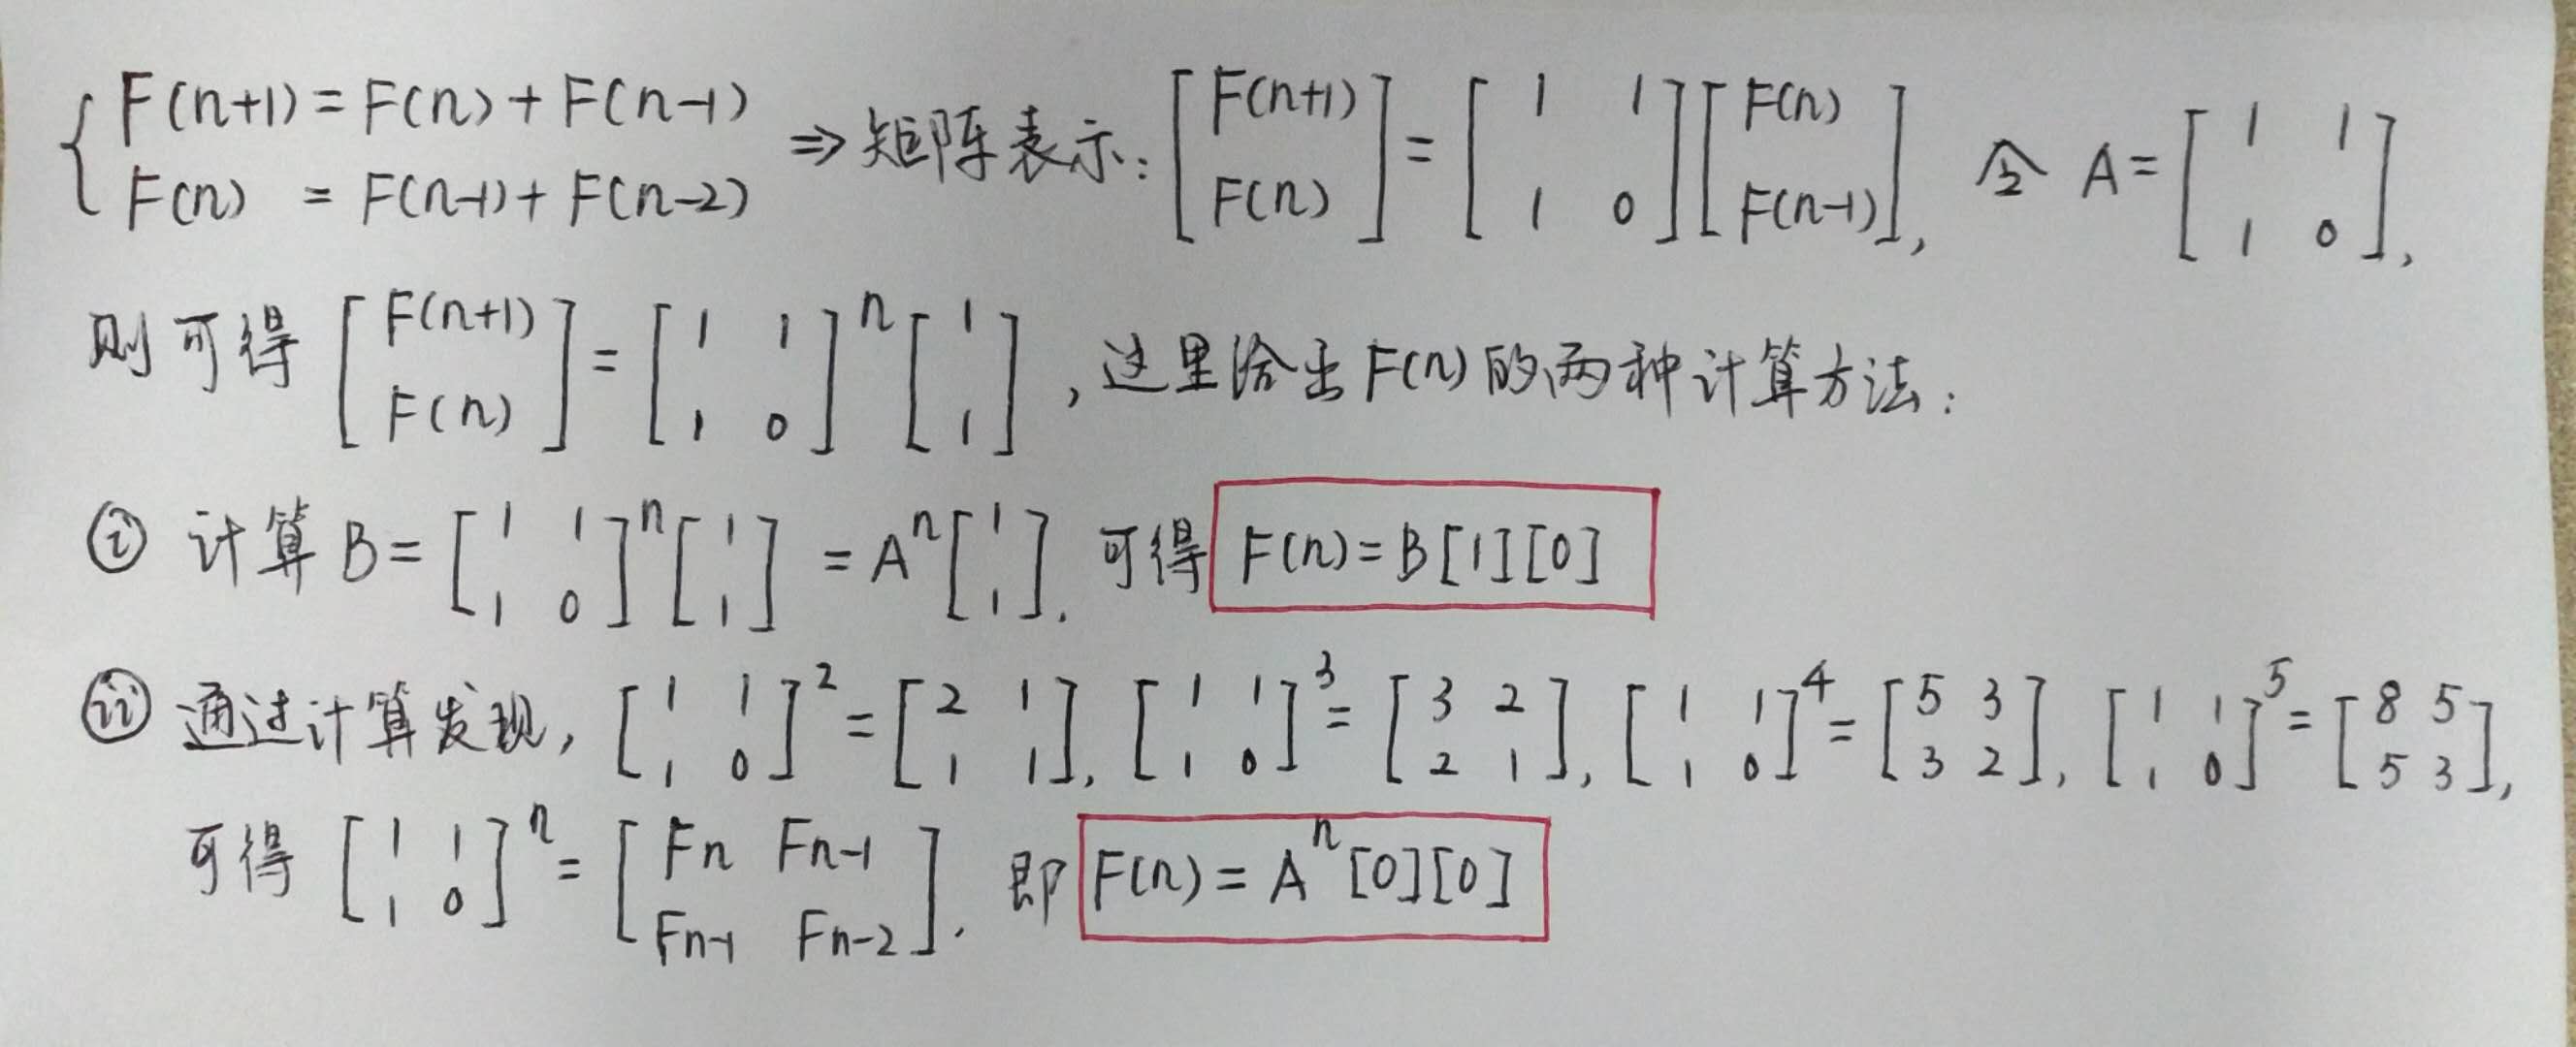 { F(n+1) = F(n) + F(n-1)
F(n) = F(n-1) + F(n-2) ⇒ 矩阵表示: [F(n+1); F(n)] = [1 1; 1 0][F(n); F(n-1)], 令 A = [1 1; 1 0],
则可得 [F(n+1); F(n)] = [1 1; 1 0]^n [1; 1], 这里给出F(n)的两种计算方法:
ⓘ 计算 B = [1 1; 1 0]^n [1; 1] = A^n [1; 1]. 可得 F(n) = B[1][0]
ⓘⓘ 通过计算发现, [1 1; 1 0]^2 = [2 1; 1 1], [1 1; 1 0]^3 = [3 2; 2 1], [1 1; 1 0]^4 = [5 3; 3 2], [1 1; 1 0]^5 = [8 5; 5 3],
可得 [1 1; 1 0]^n = [Fn Fn-1; Fn-1 Fn-2]. 即 F(n) = A^n [0][0]